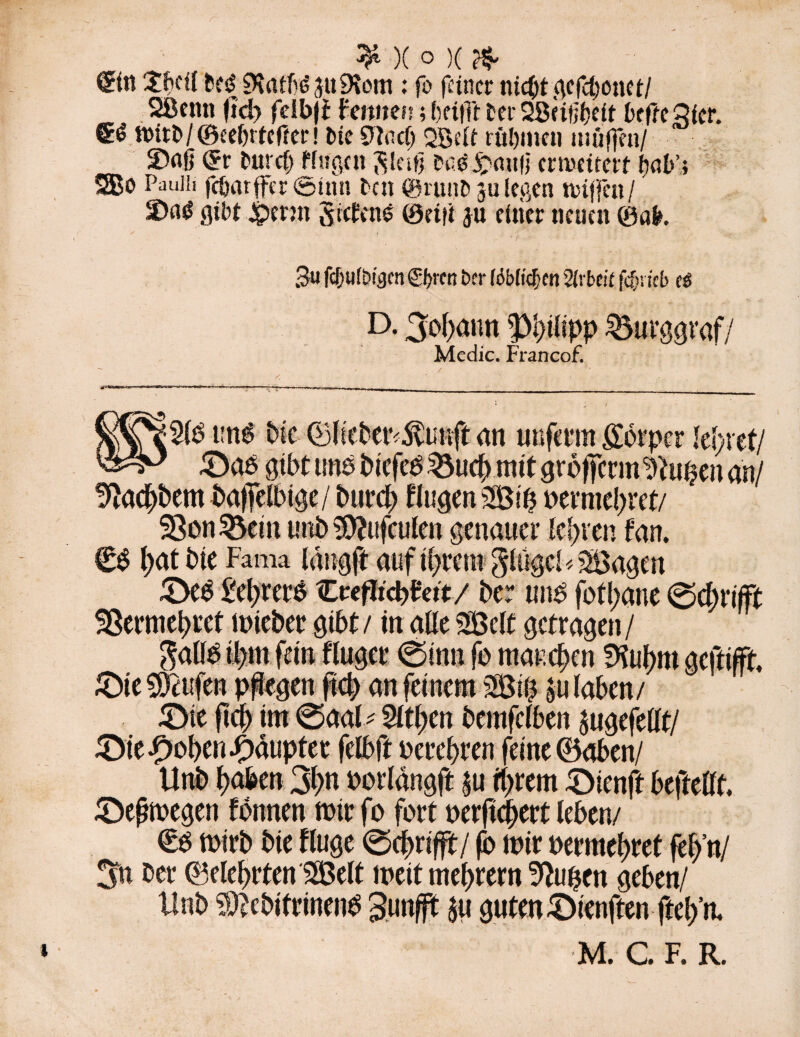 )( o )(
Ein Theil des Raths zu Rom : so seiner nicht geschonet/
Wenn sich selbst kennen ; heißt der Weißheit beste Zier.
Es wird / Geehrtester! die Nach Welt rühmen müssen/
Daß Er durch klugen Fleiß das Hauß erweitert hab';
Wo Paulli scharffer Sinn den Grund zu legen wissen/
Das gibt Herrn Fickens Geist zu einer neuen Gab.
Zu schuldigen Ehren der löblichen Arbeit schrieb es
D. Johann Philipp Burggraf/
Medic. Francof.
Was uns die Glieder-Kunst an unserm Cörper lehret/
Das gibt uns dieses Buch mit grösserm Nutzen an/
Nachdem dasselbige / durch klugen Witz vermehret/
Von Bein und Musculen genauer lehren kan.
Es hat die Fama längst auf ihrem Flügel-Wagen
Des Lehrers Treflichkeit / der uns sothane Schrifft
Vermehret wieder gibt / in alle Welt getragen /
Falls ihm sein kluger Sinn so manchen Ruhm gestifft.
Die Musen pflegen sich an seinem Witz zu laben /
Die sich im Saal-Athen demselben zugesellt/
Die Hohen Häupter selbst verehren seine Gaben/
Und haben Ihn vorlängst zu ihrem Dienst bestellt.
Deßwegen können wir so fort versichert leben/
Es wird die kluge Schrifft / so wir vermehret seh'n/
In der Gelehrten Welt weit mehrern Nutzen geben/
Und Meditrinens Zunfft zu guten Diensten steh'n.
M. C. F. R.